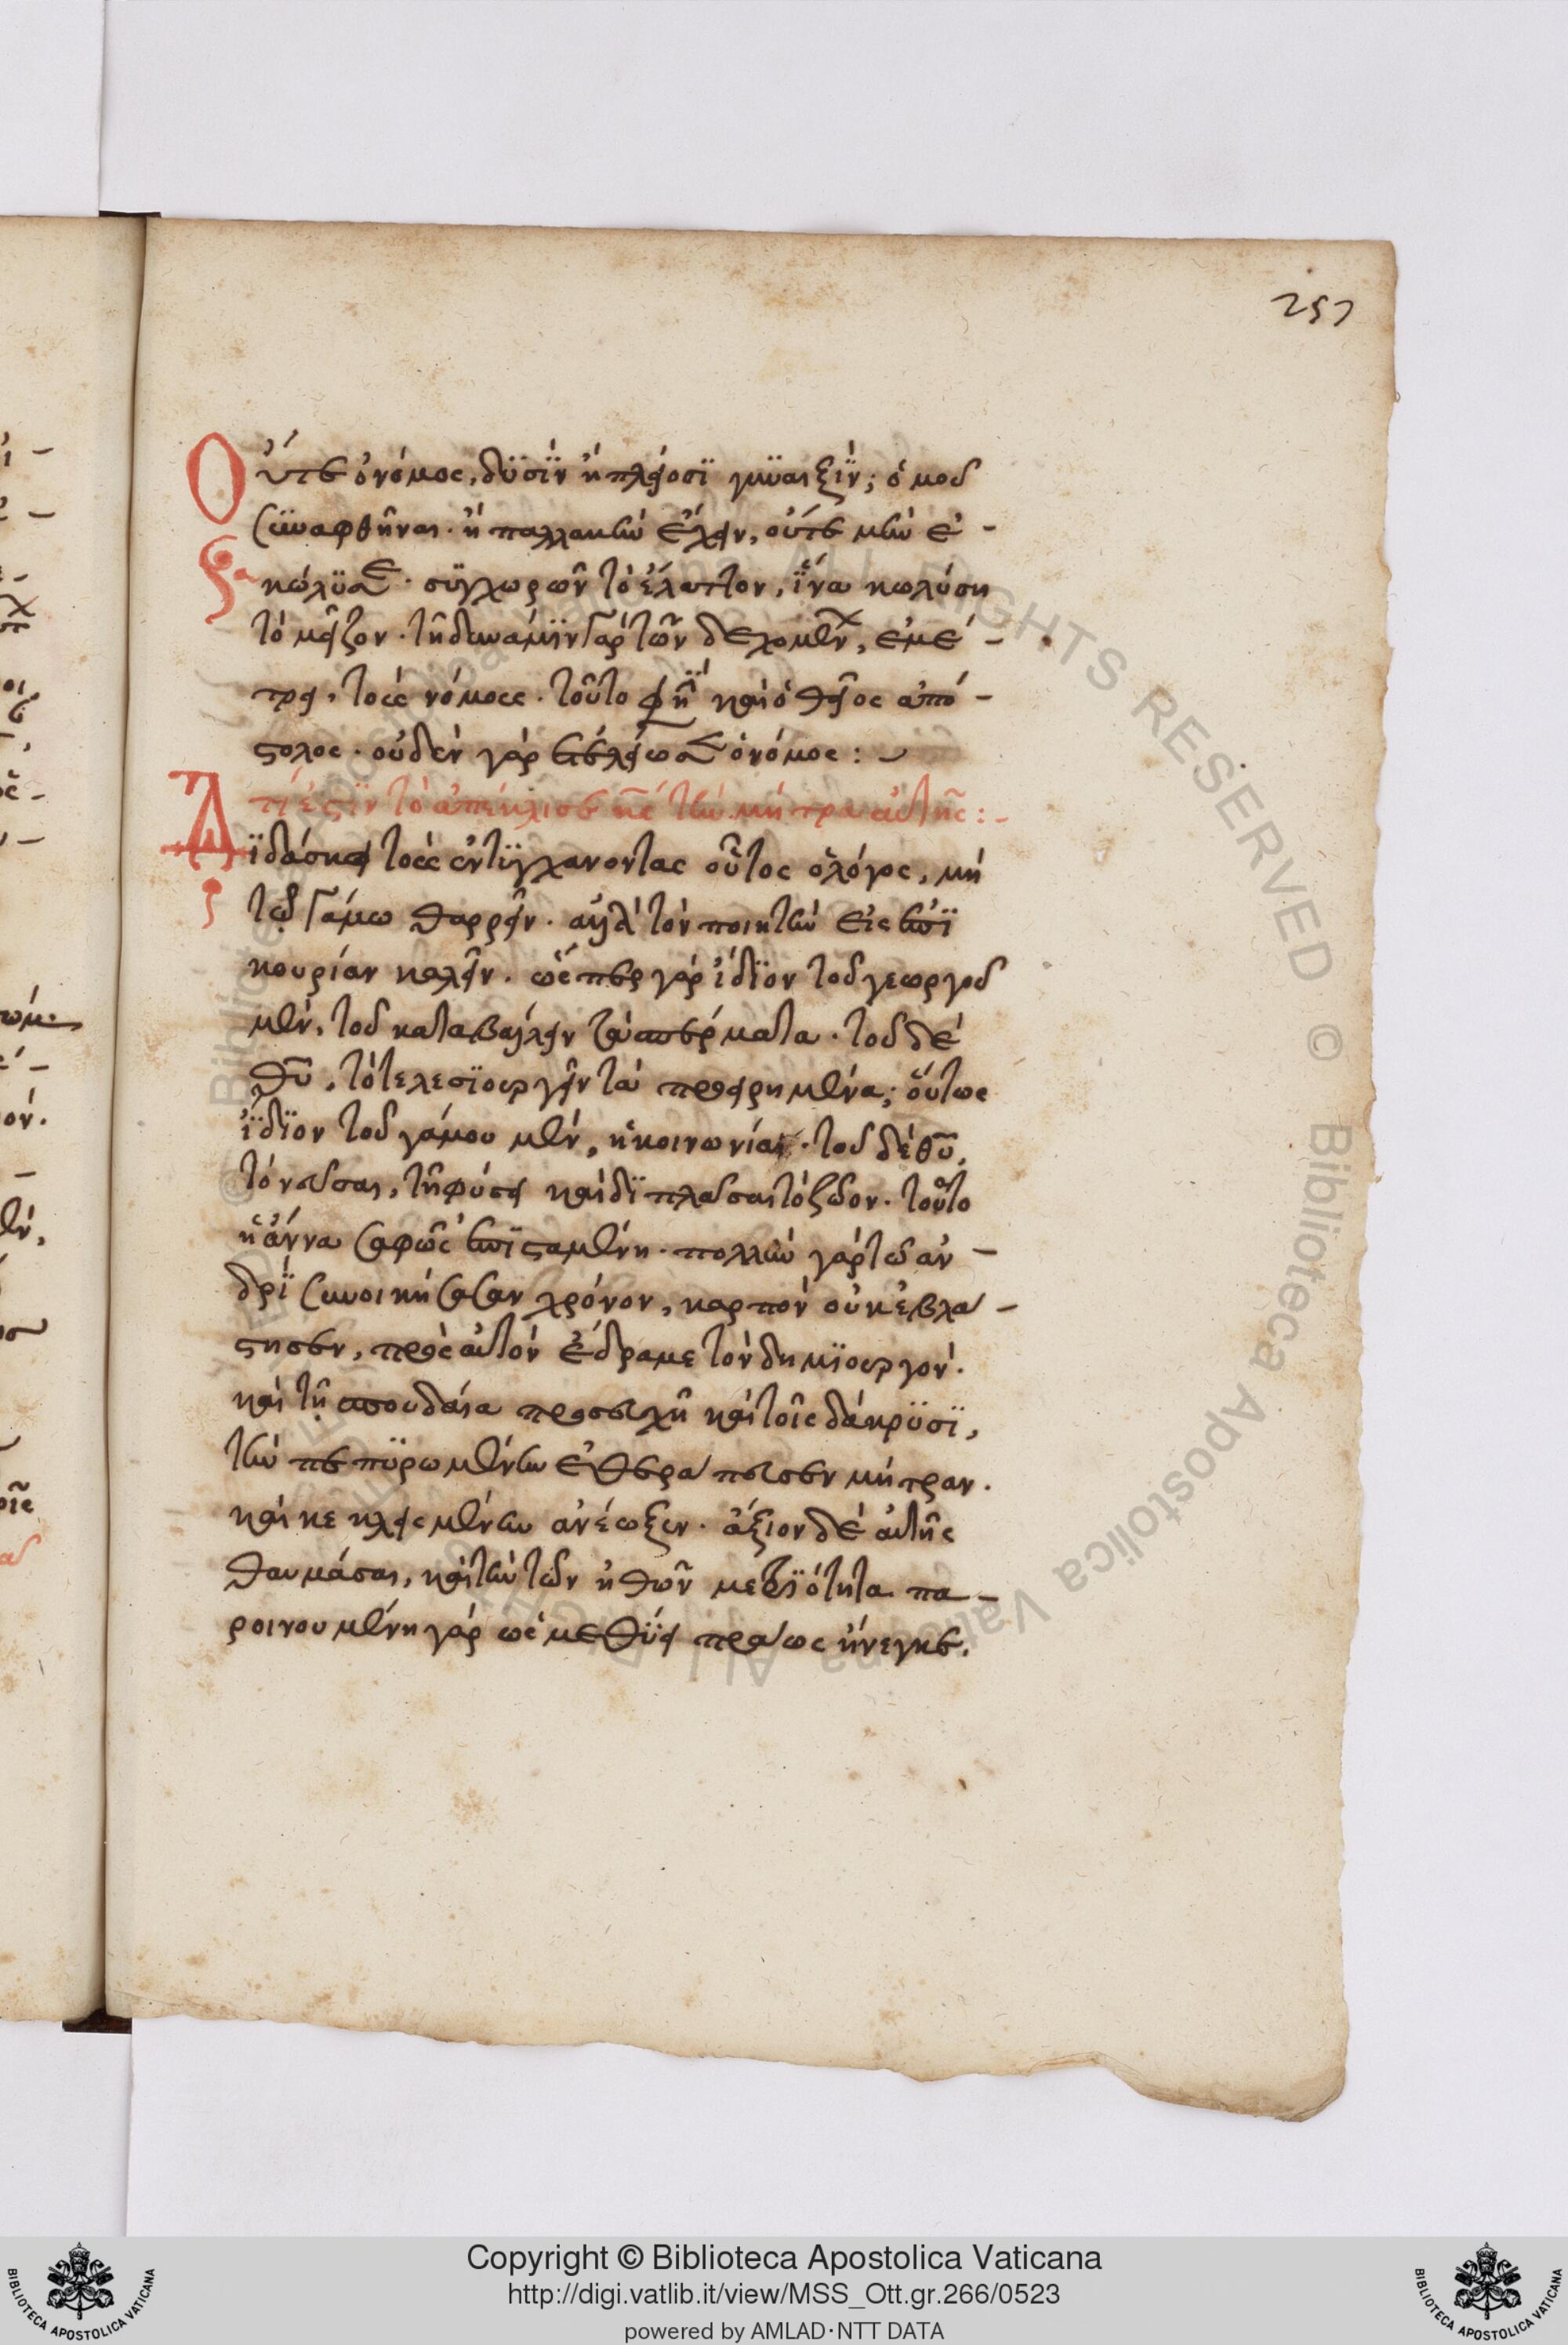 257
Οὔτε ὁ νόμος, δϋσὶν ἢ πλείοσϊ γυναιξὶν; ὁμοῦ
συναφθῆναι. ἢ παλλακὴν ἔχειν, οὔτε μὴν ἐ-
κώλϋσε. σϋγχωρῶν τὸ ἔλαττον, ἵνα κωλύση
τὸ μεῖζον. τῇ δυνάμϊν γὰρ τῶν δεχομένων, ἐμέ-
τρει, τοὺς νόμους. τοῦτο φησὶ καὶ ὁ θεῖος ἀπό-
στολος. οὐδὲν γὰρ ἐτελείωσεν ὁ νόμος: ~
τί ἐστϊν τὸ ἀπέκλεισε κς τὴν μήτραν αὐτῆς: -
Δϊδάσκει τοὺς ἐντϋγχάνοντας οὗτος ὁ λόγος, μὴ
τῷ γάμω θαρρεῖν. ἀλλὰ τὸν ποιητὴν εἰς ἐπϊ
κουρίαν καλεῖν. ὥσπερ γὰρ ἴδϊον τοῦ γεωργοῦ
μὲν, τοῦ καταβάλλειν τὰ σπέρματα. τοῦ δὲ
θυ, τὸ τελεσϊουργεῖν τὰ προειρημένα; οὕτως
ἴδϊον τοῦ γάμου μὲν, ἡ κοινωνία. τοῦ δὲ θυ,
τὸ νεῦσαι, τῇ φύσει καὶ δϊαπλάσαι τὸ ζῶον. τοῦτο
ἡ ἄννα σαφῶς ἐπϊσταμένη. πολλὴν γὰρ τῶ ἀν-
δρὶ συνοικήσασαν χρόνον, καρπὸν οὐκ ἐβλά-
στησεν, πρὸς αὐτὸν ἔδραμε τὸν δημϊουργὸν.
καὶ τῇ σπουδαία προσευχῇ καὶ τοῖς δάκρϋσϊ,
τὴν πεπϋρωμένην ἐθεράπευσεν μήτραν.
καὶ κεκλεισμένην ἀνέωξεν. ἄξιον δὲ αὐτῆς
θαυμάσαι, καὶ τὴν τῶν ἠθῶν μετρϊότητα. πα-
ροινουμένη γὰρ ὡς μεθύει πράως ἤνεγκε.
Copyright © Biblioteca Apostolica Vaticana
http://digi.vatlib.it/view/MSS_Ott.gr.266/0523
powered by AMLAD·NTT DATA